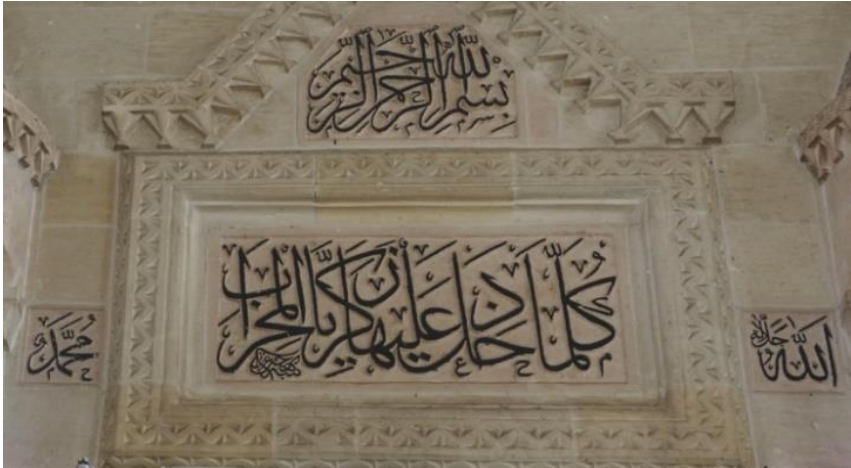 بسم الله الرحمن الرحيم
كلما دخل عليها زكريا المحراب
الله جل جلاله
محمد